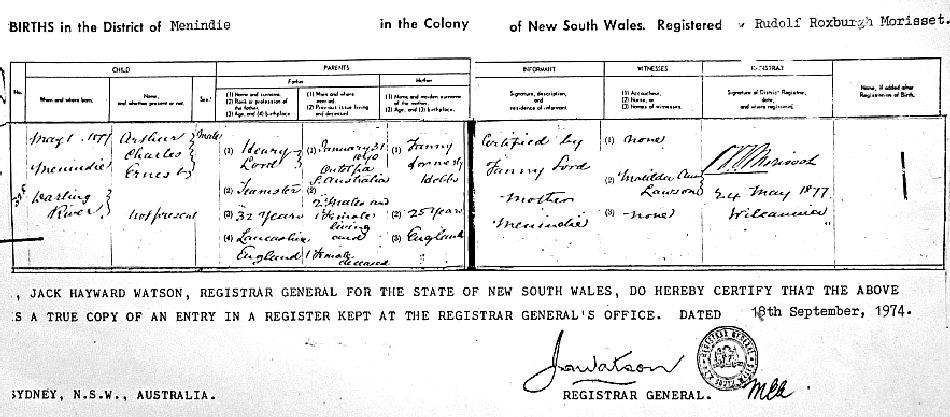 BIRTHS in the District of Menindie in the Colony of New South Wales. Registered Rudolf Roxburgh Morisset.
CHILD PARENTS INFORMANT WITNESSES REGISTRAR
No. When and where born. Name, and whether present or not. Sex.
Father
(1) Name and surname.
(2) Rank or profession of the father.
(3) Age, and (4) birthplace
(1) When and where married.
(2) Previous issue living and deceased.
Mother
(1) Name and maiden surname of the mother.
(2) Age, and (3) birthplace.
Signature, description, and residence of informant.
(1) Accoucheur,
(2) Nurse, or
(3) Names of witnesses.
Signature of District Registrar, date, and where registered.
Name, if added after Registration of Birth.
May 1 1877
Menindie
Darling
River
Arthur
Charles
Ernest
not present
Male
(1) Henry
Lord
(2) Teamster
(3) 32 Years
(4) Lancashire
England
(1) January 31
1870
S Australia
(2)
2 males and
1 female
living
and
1 female
deceased
(1) Fanny
formerly
(2) 25 Years
(3) England
Certified by
Fanny Lord
Mother
Menindie
(1) none
(2) Matilda Ann
Lawson
(3) none
24 May 1877
Wilcannia
, JACK HAYWARD WATSON, REGISTRAR GENERAL FOR THE STATE OF NEW SOUTH WALES, DO HEREBY CERTIFY THAT THE ABOVE
IS A TRUE COPY OF AN ENTRY IN A REGISTER KEPT AT THE REGISTRAR GENERAL'S OFFICE. DATED 18th September, 1974.
JHWatson
SYDNEY, N.S.W., AUSTRALIA. REGISTRAR GENERAL.